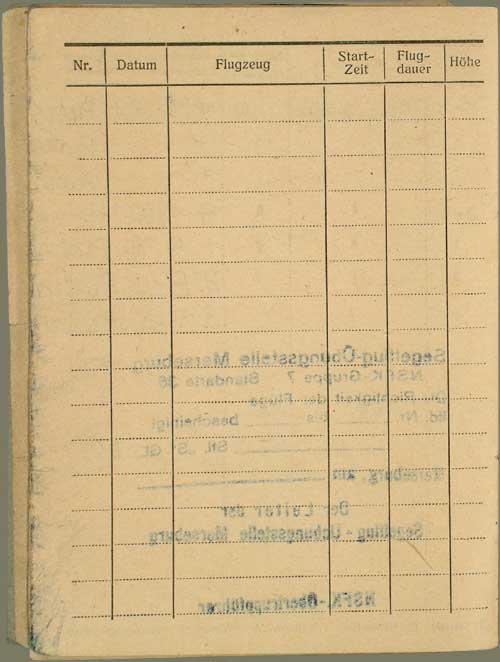 Nr. Datum Flugzeug Start-Zeit Flug-dauer Höhe
Segelflug-Übungsstelle Merseburg
NSFK-Gruppe 7 Standarte 36
Richtigkeit der Flüge
lfd. Nr. bis bescheinigt
Stf. St. Gt.
Merseburg, am
Der Leiter der
Segelflug - Uebungsstelle Merseburg
NSFK-Obertruppführer